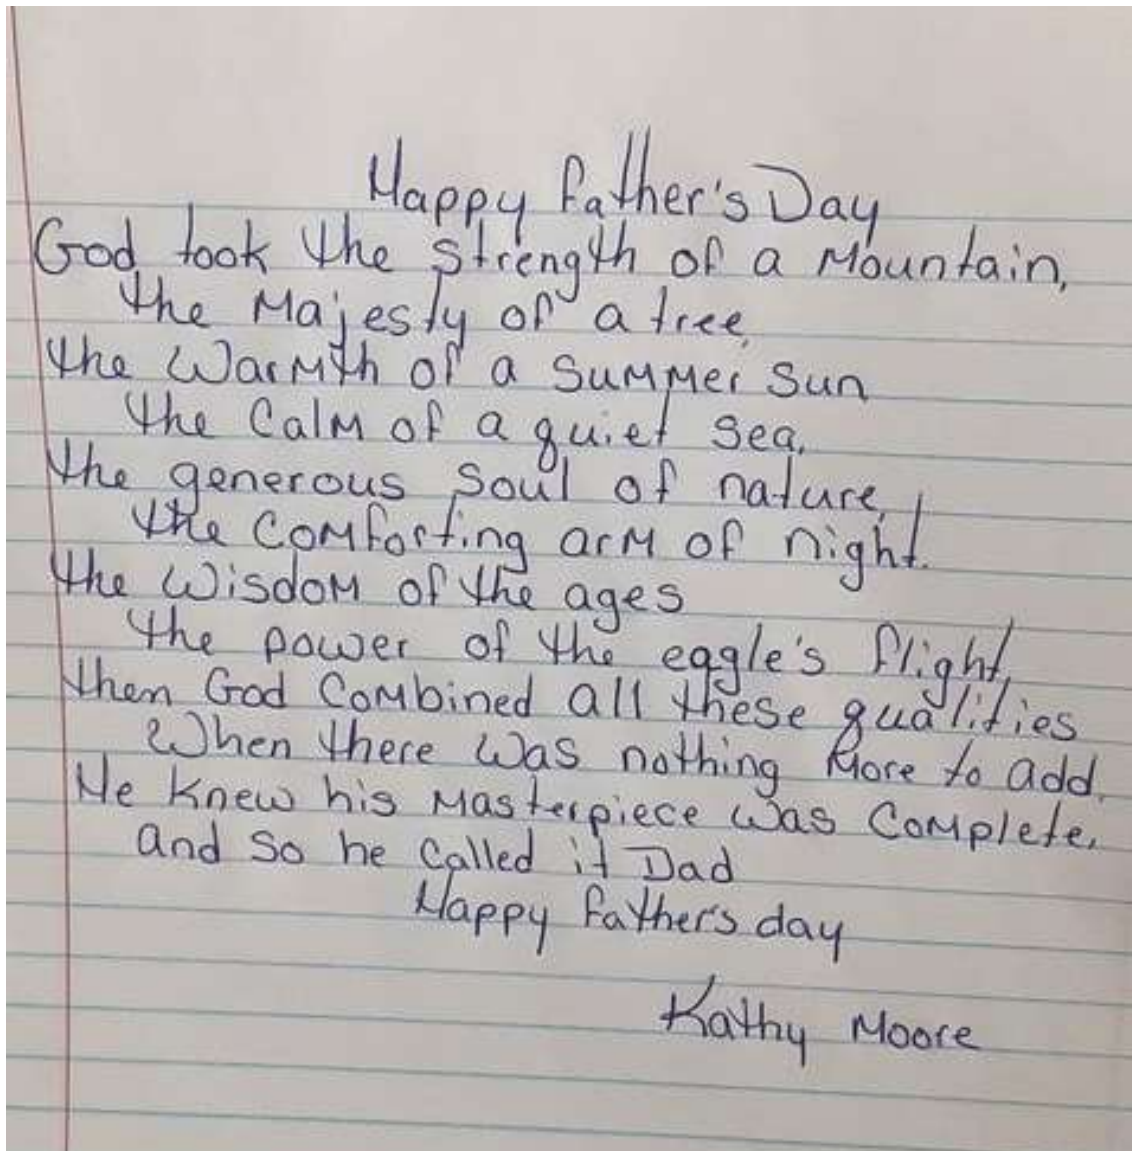 Happy father's Day
God took the strength of a Mountain,
the Majesty of a tree,
the Warmth of a Summer Sun
the Calm of a quiet sea,
the generous soul of nature,
the Comforting arm of night.
the Wisdom of the ages
the power of the eagle's flight,
then God Combined all these qualities
When there was nothing More to add,
He knew his Masterpiece was Complete,
and so he Called it Dad
Happy father's day
Kathy Moore